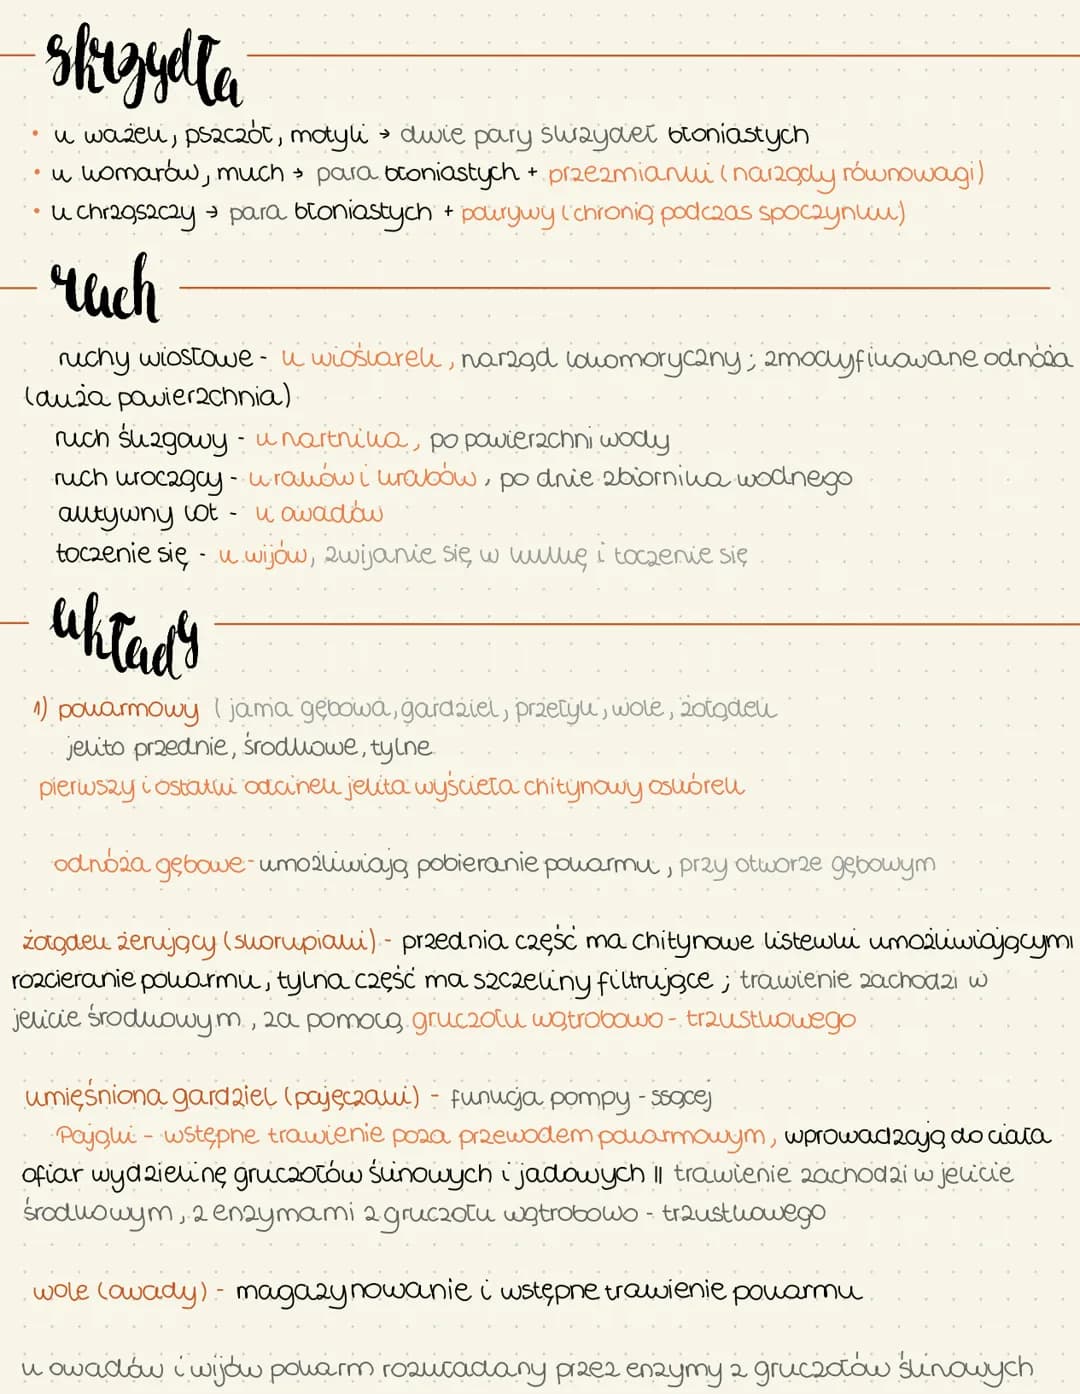 skrzydła
• u ważek, pszczół, motyli → dwie pary skrzydeł błoniastych
• u komarów, much → para błoniastych + przezmianki (narządy równowagi)
• u chrząszczy → para błoniastych + pokrywy (chronią podczas spoczynku)
ruch
ruchy wiosłowe - u wioślarek, narząd lokomoryczny; zmodyfikowane odnóża
(duża powierzchnia)
ruch ślizgowy - u nartnika, po powierzchni wody
ruch kroczący - u raków i krabów, po dnie zbiornika wodnego
aktywny lot - u owadów
toczenie się - u wijów, zwijanie się w kulkę i toczenie się
układy
1) pokarmowy (jama gębowa, gardziel, przełyk, wole, żołądek
jelito przednie, środkowe, tylne
pierwszy i ostatki odcinek jelita wyścieła chitynowy oskórek
odnóża gębowe - umożliwiają pobieranie pokarmu, przy otworze gębowym
żołądek żerujący (skorupiaki) - przednia część ma chitynowe listewki umożliwiającymi
rozcieranie pokarmu, tylna część ma szczeliny filtrujące; trawienie zachodzi w
jelicie środkowym, za pomocą gruczołu wątrobowo - trzustkowego
umięśniona gardziel (pajęczaki) - funkcja pompy - ssącej
Pająki - wstępne trawienie poza przewodem pokarmowym, wprowadzają do ciała
ofiar wydzielinę gruczołów ślinowych i jadowych || trawienie zachodzi w jelicie
środkowym, z enzymami z gruczołu wątrobowo - trzustkowego
wole (owady) - magazynowanie i wstępne trawienie pokarmu
u owadów i wijów pokarm rozkładany przez enzymy z gruczołów ślinowych